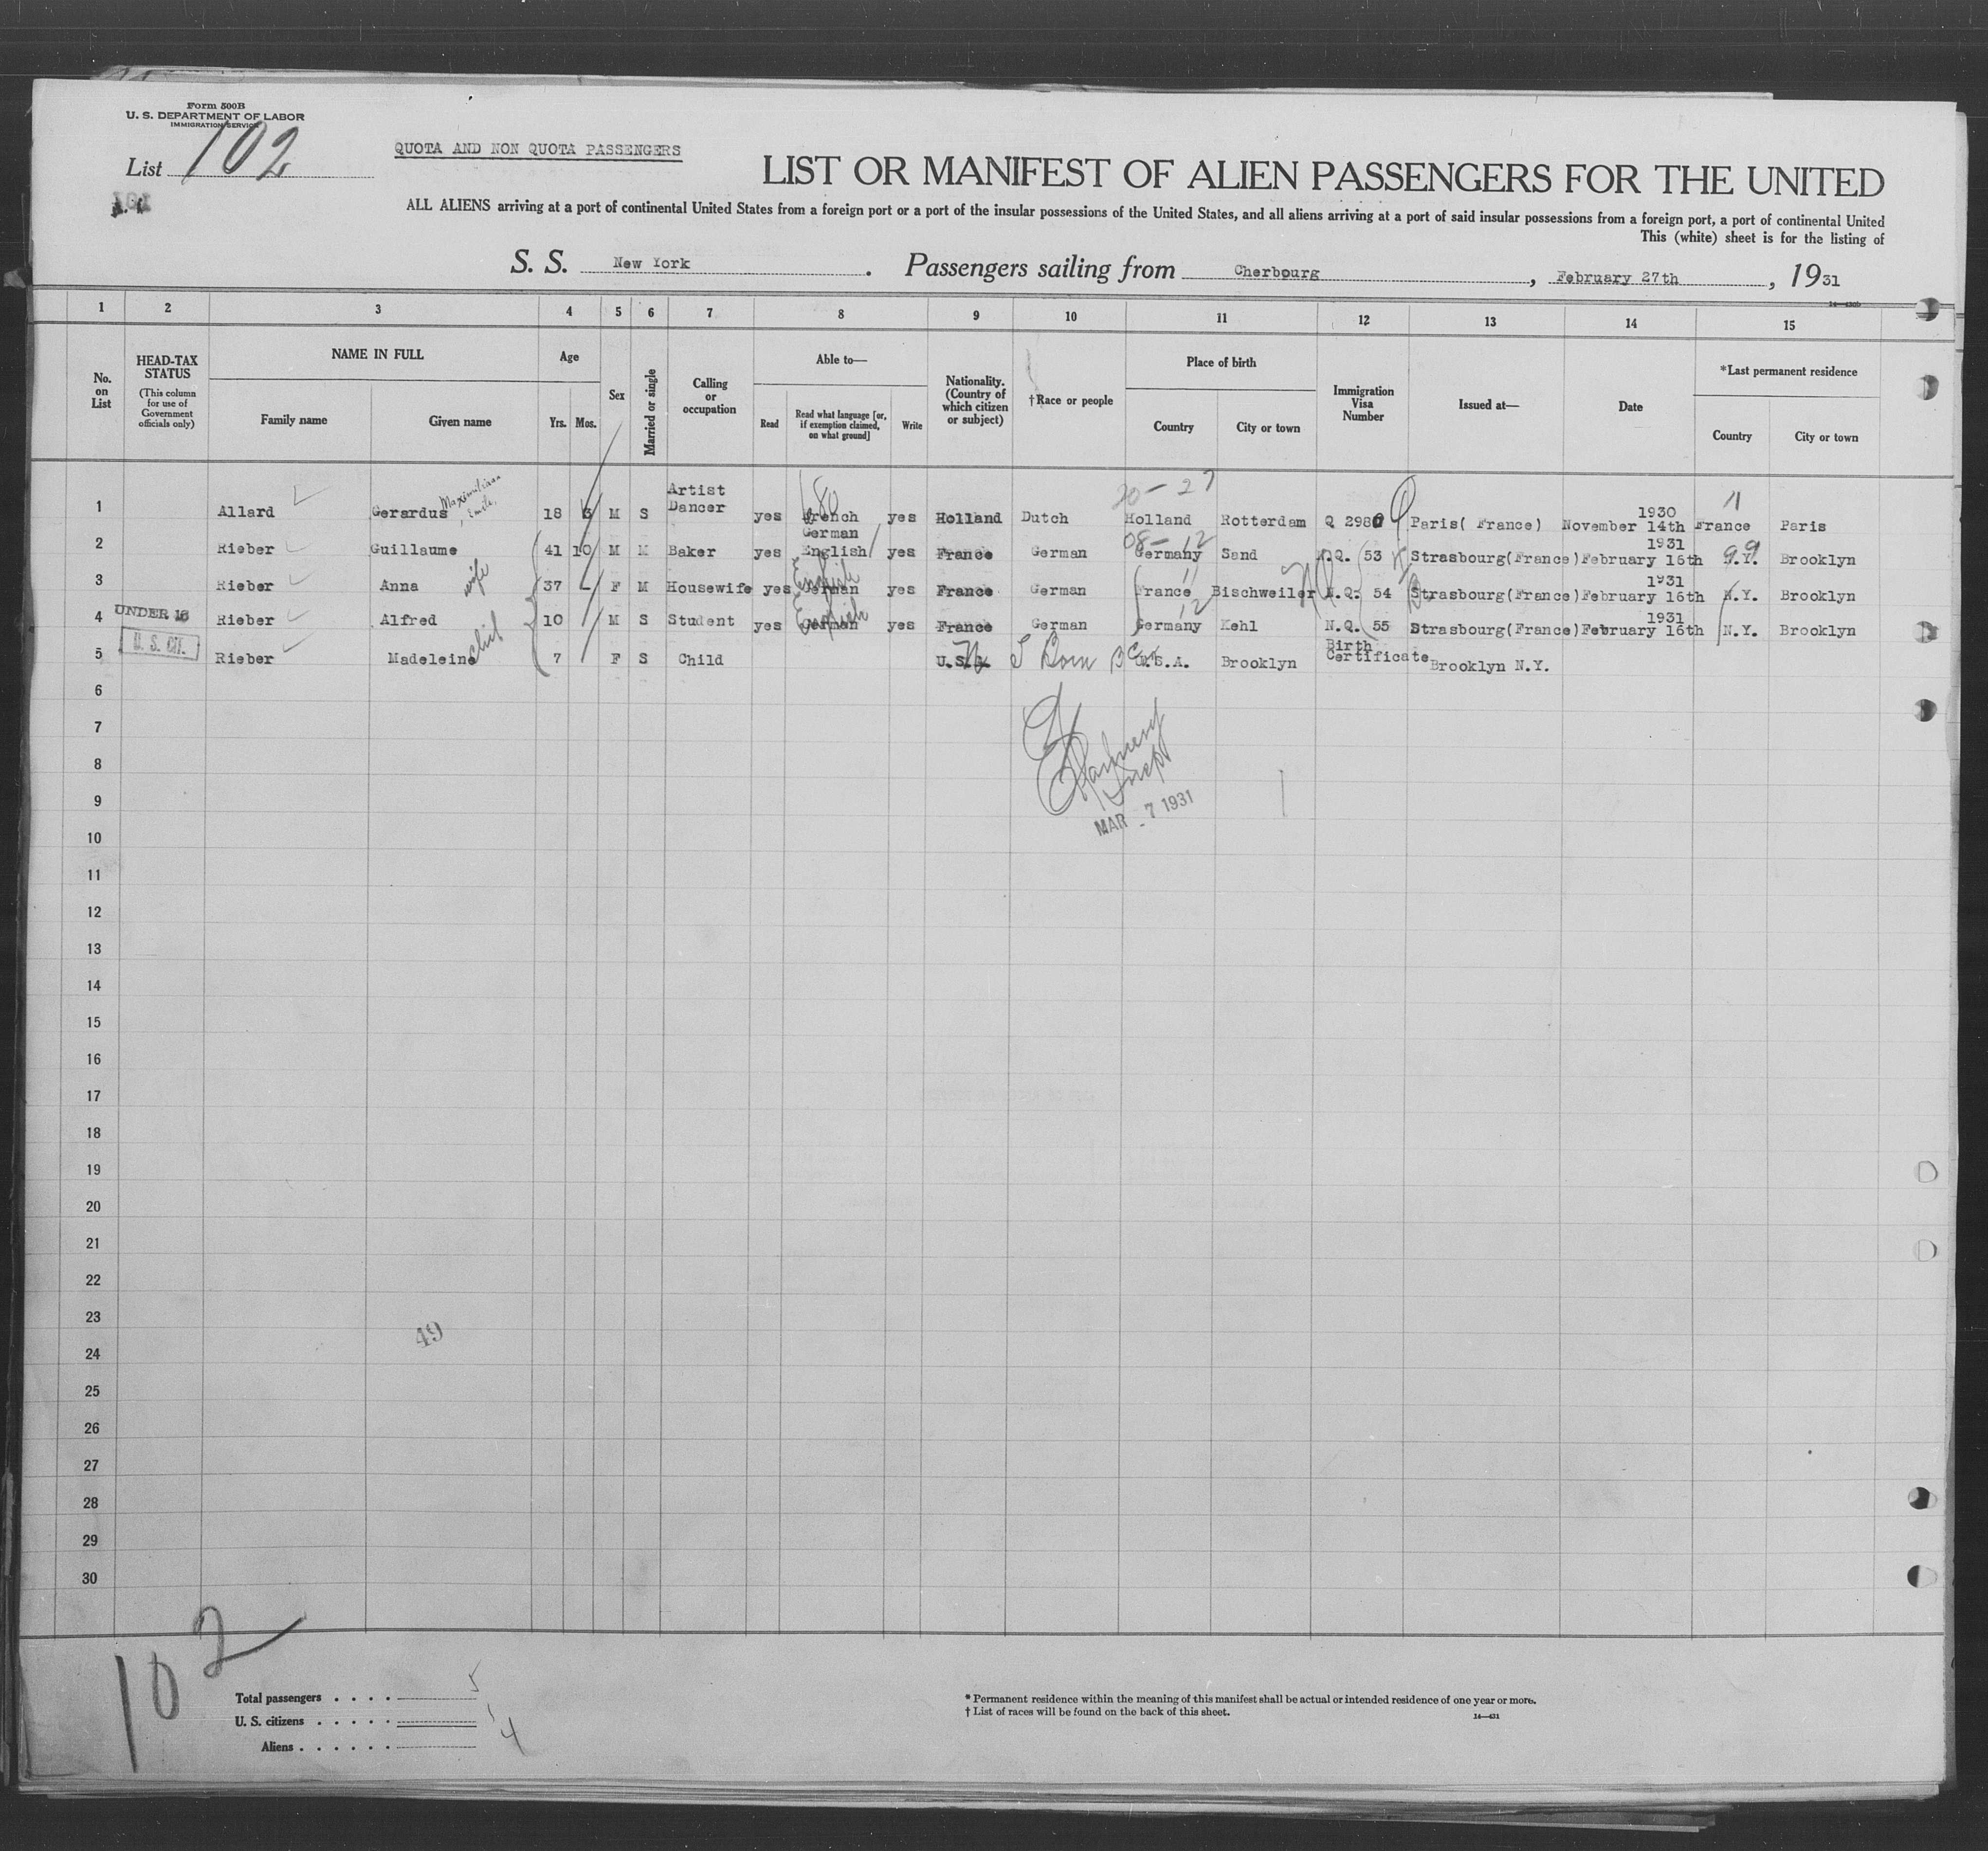 Form 500B
U. S. DEPARTMENT OF LABOR
IMMIGRATION SERVICE
List 102
QUOTA AND NON QUOTA PASSENGERS
LIST OR MANIFEST OF ALIEN PASSENGERS FOR THE UNITED
ALL ALIENS arriving at a port of continental United States from a foreign port or a port of the insular possessions of the United States, and all aliens arriving at a port of said insular possessions from a foreign port, a port of continental United
This (white) sheet is for the listing of
S. S. New York . Passengers sailing from Cherbourg , February 27th , 1931
1 2 3 4 5 6 7 8 9 10 11 12 13 14 15
No. on List
HEAD-TAX STATUS
(This column for use of Government officials only)
NAME IN FULL
Family name
Given name
Age
Yrs. Mos.
Sex
Married or single
Calling or occupation
Able to—
Read
Read what language [or, if exemption claimed, on what ground]
Write
Nationality. (Country of which citizen or subject)
† Race or people
Place of birth
Country
City or town
Immigration Visa Number
Issued at—
Date
*Last permanent residence
Country
City or town
20 - 27 11
1 Allard Gerardus Maximilian, Emile, 18 M S Artist Dancer yes French yes Holland Dutch Holland Rotterdam Q Paris( France) 1930 November 14th France Paris
08 - 12 99
2 Rieber Guillaume 41 10 M M Baker yes German English yes France German Germany Sand N.Q. 53 Strasbourg(France) 1931 February 16th N.Y. Brooklyn
11
3 Rieber Anna wife 37 F M Housewife yes English German yes France German France Bischweiler N.Q. 54 Strasbourg(France) 1931 February 16th N.Y. Brooklyn
12
4 UNDER 16 Rieber Alfred 10 M S Student yes English German yes France German Germany Kehl N.Q. 55 Strasbourg(France) 1931 February 16th N.Y. Brooklyn
5 U. S. CIT. Rieber Madeleine 7 F S Child U.S.A. Born U.S.A. Brooklyn Birth Certificate Brooklyn N.Y.
6
7
8
9
MAR - 7 1931
10
11
12
13
14
15
16
17
18
19
20
21
22
23
49
24
25
26
27
28
29
30
102
Total passengers . . . . 5
U. S. citizens . . . . . 1
Aliens . . . . . . 4
* Permanent residence within the meaning of this manifest shall be actual or intended residence of one year or more.
† List of races will be found on the back of this sheet.
14—431